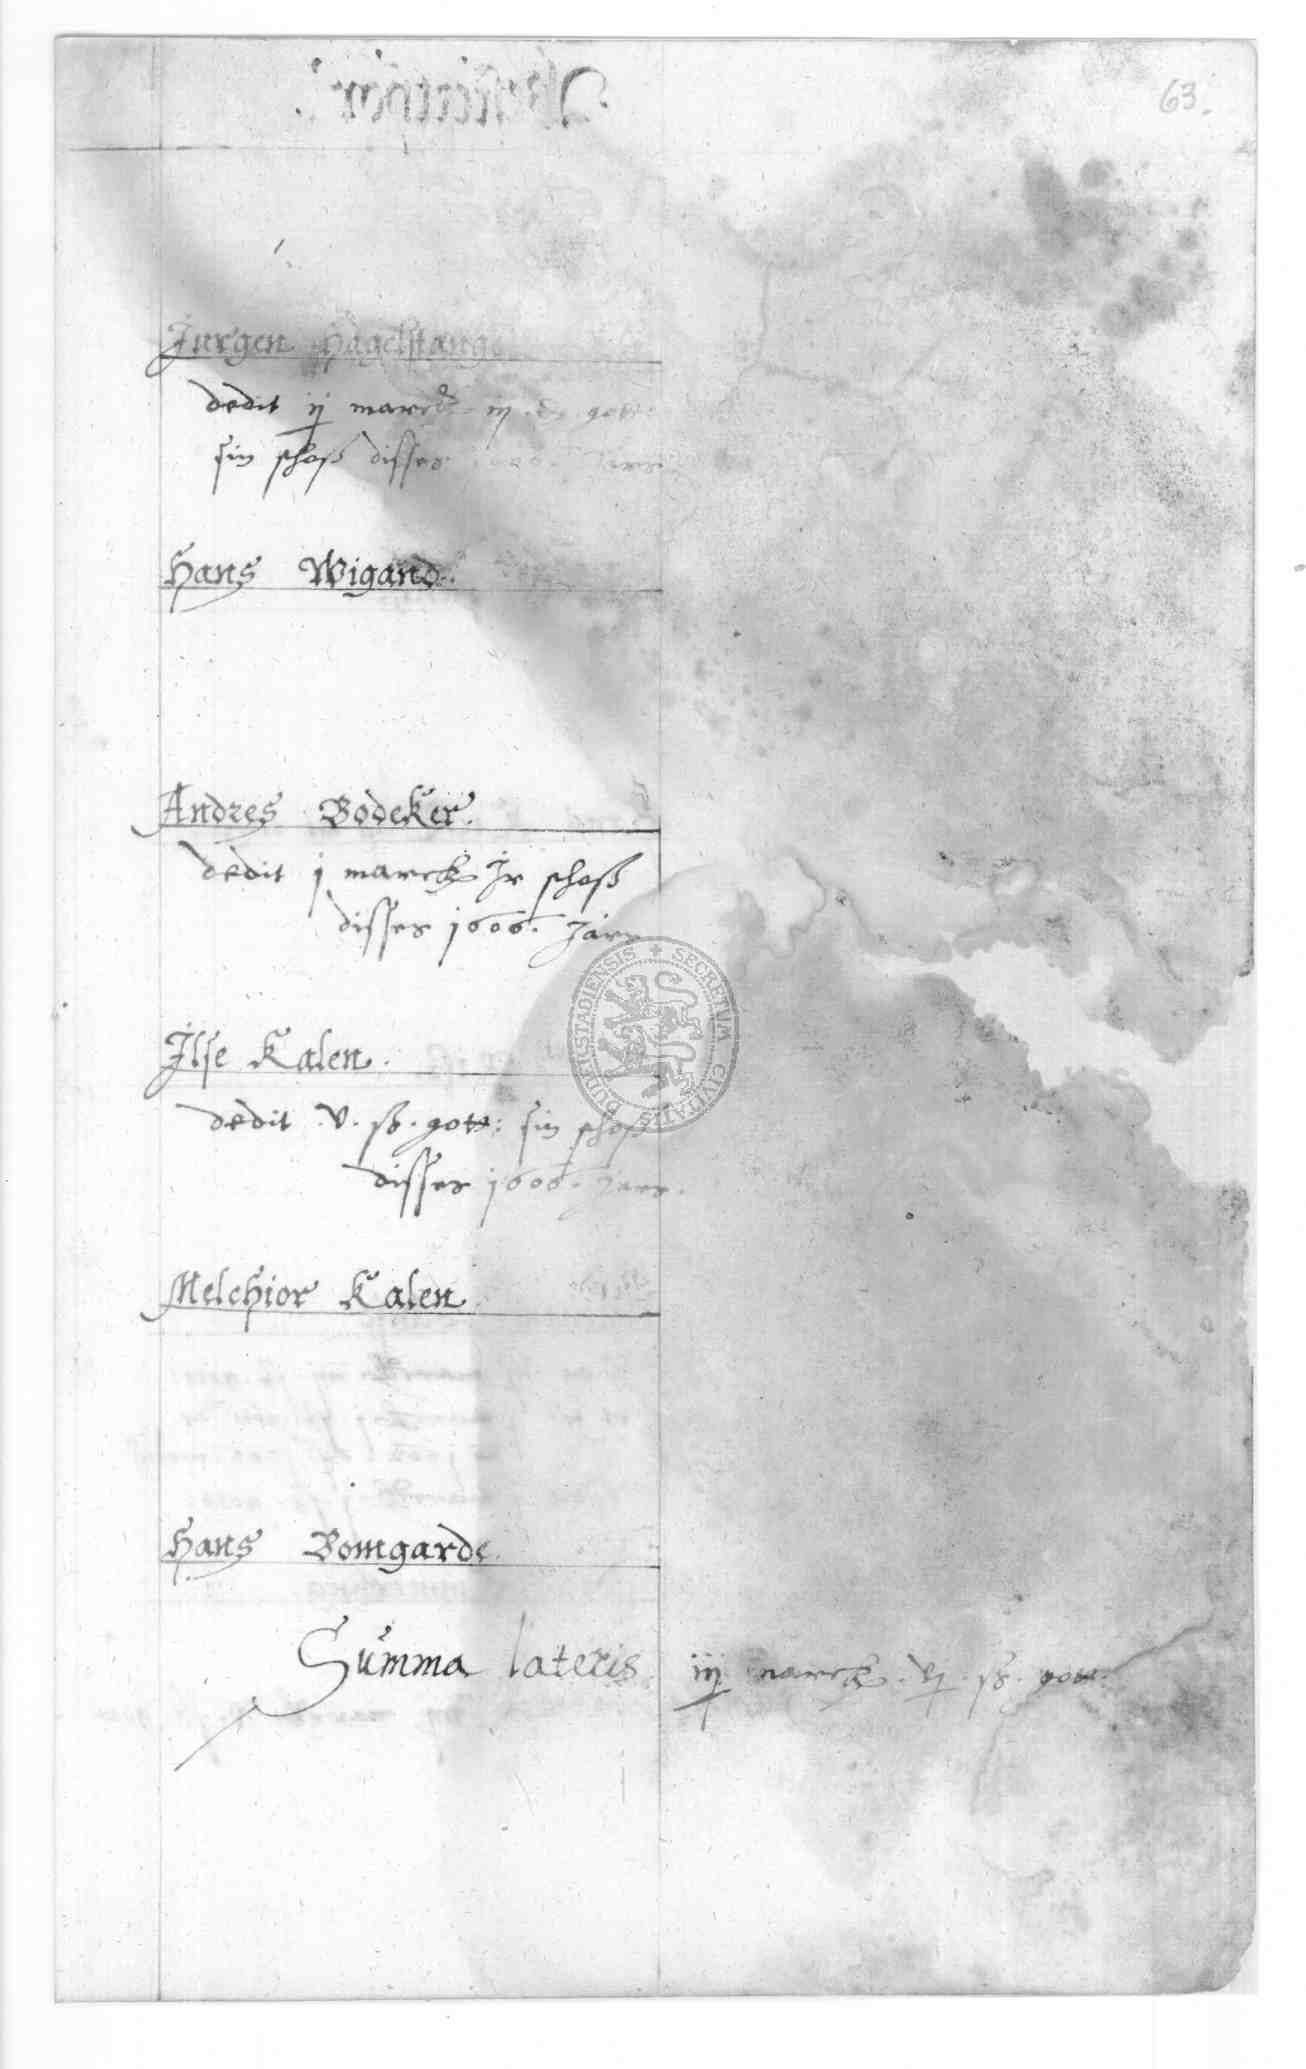 63.
Jurgen Hagelstange
dedit ij marck iij ß gott:
sin schoß disses 1606. Jars
Hans Wigand.
Andres Bodeker.
dedit j marck Jr schoß
disses 1606. Jars
Ilse Kalen.
dedit .v. ß. gott: sin schoß
disses 1606. Jars.
Melchior Kalen
Hans Bomgarde.
Summa lateris iij marck. vj. ß. gott.
SECRETUM CIVITATIS DUDERSTADIENSIS